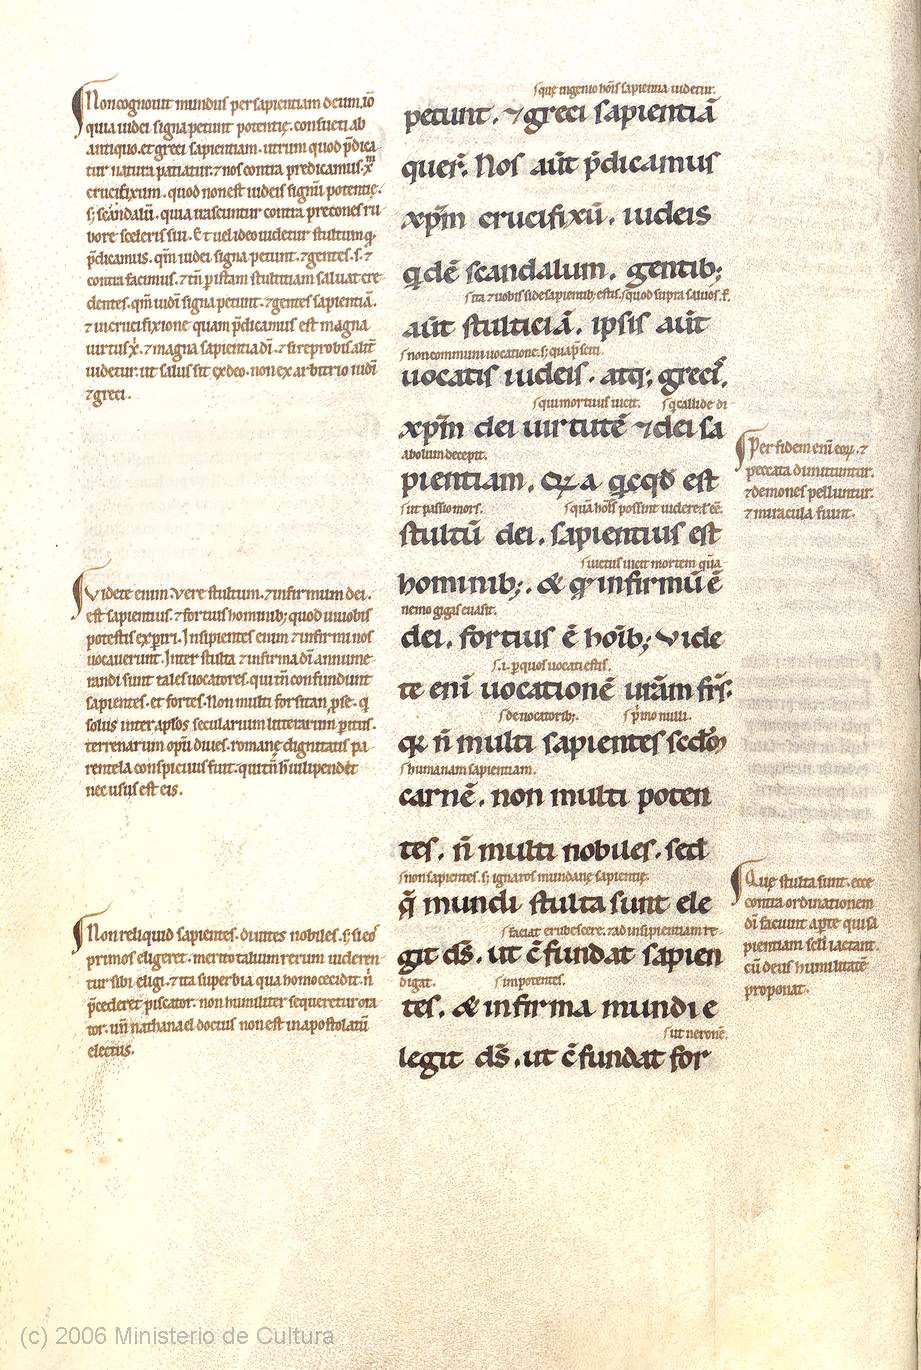 Non cognouit mundus per sapientiam deum. iõ
quia iudei signa petunt potentię. consueti ab
antiquo. et greci sapientiam. utrum quod p̃dica
tur natura patiatur. ⁊ nos contra predicamus. xp̃m
crucifixum. quod non est iudeis signũ potentię.
s; scandalũ. quia nascuntur contra precones ru
bore sceleris sui. Et uel ideo uidetur stultum q.
p̃dicamus. qm̃ iudei signa petunt. ⁊ gentes. s. ⁊
contra facimus. ⁊ tñ ꝑ istam stultitiam saluat cre
dentes. qm̃ iudi signa petunt. ⁊ gentes sapientiã.
⁊ in crucifixione quam p̃dicamus est magna
uirtus x̃. ⁊ magna sapientia dĩ. ⁊ si reprobis alit̃
uidetur. ut salus sit ex deo. non ex arbitrio iudi
⁊ greci.
Videte enim. vere stultum. ⁊ infirmum dei.
est sapientius. ⁊ fortius hominib; quod in uobis
potestis exꝑiri. Insipientes enim ⁊ infirmi nos
uocauerunt. Inter stulta ⁊ infirma dĩ annume
randi sunt tales uocatores. qui tñ confundunt
sapientes. et fortes. Non multi forsitan ꝓse. q
solus inter apl̃os secularium litterarum ꝑitus.
terrenarum opũ diues. romanę dignitatis pa
rentela conspicuus fuit. qui tñ h̃ uilipendet
nec usus est eis.
Non reliquid sapientes. diuites nobiles. s; si eos
primos eligeret. merito talium rerum uideren
tur sibi eligi. ⁊ ita superbia qua homo cecidit. ñ
p̃cederet piscator. non humiliter sequeretur ora
tor. uñ nathanael doctus non est in apostolatũ
electus.
s̷ quę ingenio hoĩs sapientia uidetur.
petunt. ⁊ greci sapientiã
quer̃. Nos aũt p̃dicamus
xp̃m crucifixũ. iudeis
qdẽ scandalum. gentib;
s̷ ita ⁊ uobis fide sapientib; estis. s̷ quod supra saluos. f̃.
aũt stulticiã. ipsis aũt
s̷ non communi uocatione. s;
uocatis iudeis. atq; grecis̃,
s̷ qui mortuus uicit. s̷ q callide di
xp̃m dei uirtutẽ ⁊ dei sa
abolum decepit.
pientiam. Quia quicqd est
s̷ ut passio mors. s̷ quã hoĩs possint uidere. ł eẽ.
stultũ dei. sapientius est
s̷ uictus uicit mortem quã
hominib;. & qd infirmũ ẽ
nemo gigas euasit.
dei. fortius ẽ hoĩb; Vide
s̷ .i. ꝑ quos uocati estis.
te enĩ uocationẽ ur̃am fr̃s.
s̷ de uocatorib;. s̷ p̃mo nulli.
qr̃ ñ multi sapientes scdm
s̷ humanam sapientiam.
carnẽ. non multi poten
tes. ñ multi nobiles. sed
s̷ non sapientes. s; ignaros mundanę sapientię.
q̃ mundi stulta sunt ele
s̷ faciat erubescere. ⁊ ad insipientiam re
git dš. ut cõfundat sapien
digat. s̷ impotentes.
tes. & infirma mundi e
s̷ ut neronẽ.
legit dš. ut cõfundat for
Per fidem enĩ eoꝝ. ⁊
peccata dimittuntur.
⁊ demones pelluntur.
⁊ miracula fiunt.
Quę stulta sunt. ecce
contra ordinationem
dĩ faciunt aperte qui sa
pientiam seclĩ iactant.
cũ deus humilitatẽ
proponat.
(c) 2006 Ministerio de Cultura